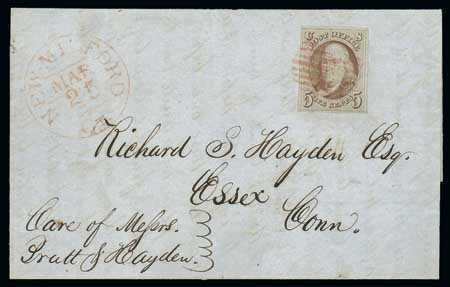 NEW MILFORD
MAR
25
Ct
U S
POST OFFICE
5 FIVE CENTS 5
Richard S. Hayden Esq.
Essex
Conn.
Care of Messrs.
Pratt & Hayden.